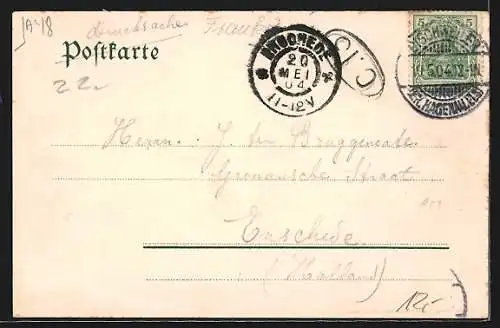 JA-18 drucksache Frankr
Postkarte
22
ENSCHEDE
20
MEI
04
11-12V
C.I.C
5 5
5.04.12-1N
(BZ. HAGENAU, ELS)
Herrn J. ter Bruggencate
Gronausche Straat
Enschede
(Holland)
12.-